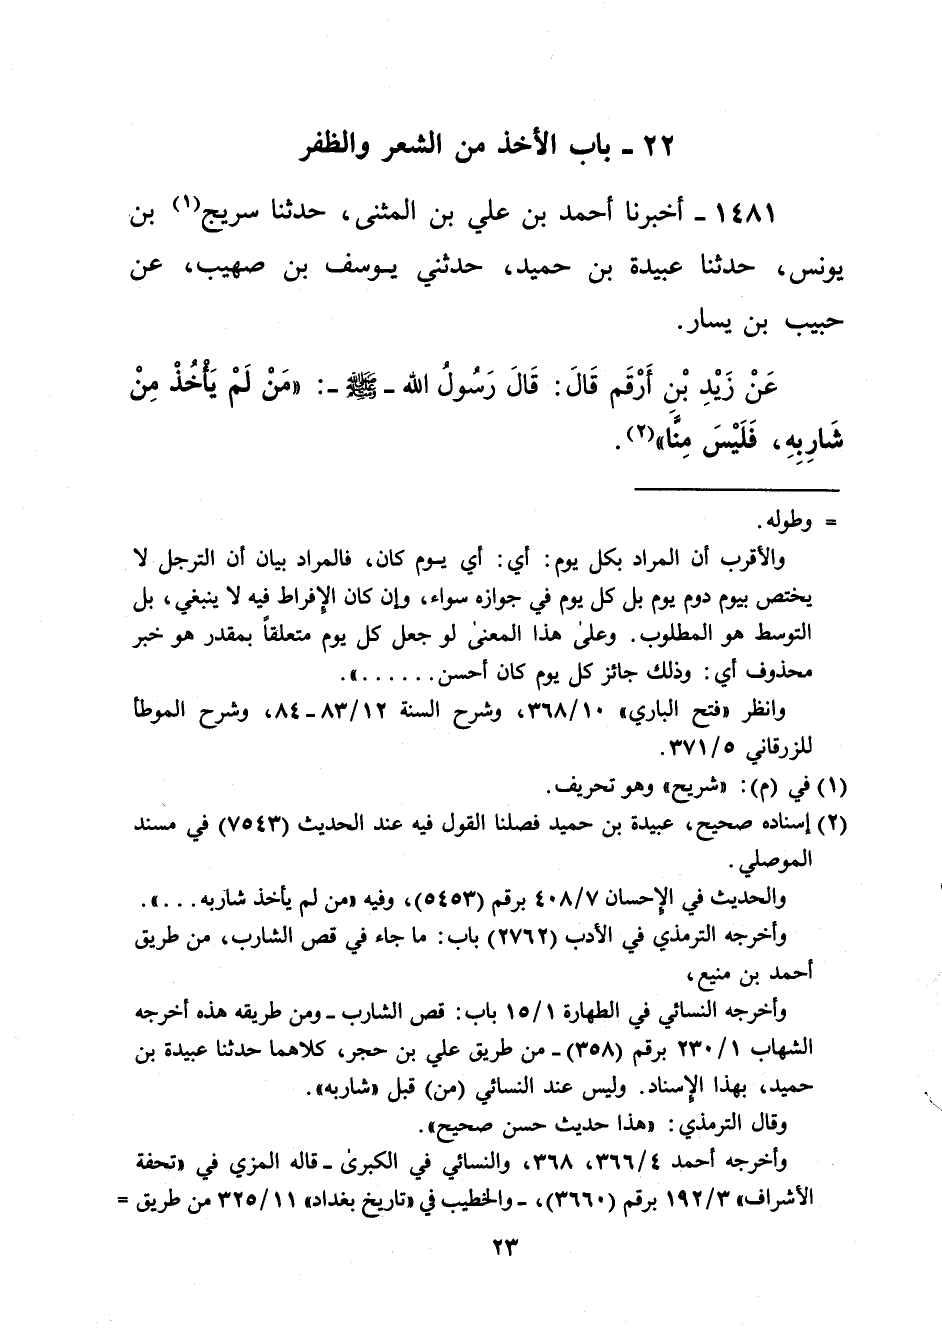 ٢٢ ـ باب الأخذ من الشعر والظفر
١٤٨١ ـ أخبرنا أحمد بن علي بن المثنى، حدثنا سريج(١) بن
يونس، حدثنا عبيدة بن حميد، حدثني يوسف بن صهيب، عن
حبيب بن يسار.
عَنْ زَيْدِ بْنِ أَرْقَم قَالَ: قَالَ رَسُولُ الله ـ ﷺ ـ: «مَنْ لَمْ يَأْخُذْ مِنْ
شَارِبِهِ، فَلَيْسَ مِنَّا»(٢).
= وطوله.
والأقرب أن المراد بكل يوم: أي: أي يوم كان، فالمراد بيان أن الترجل لا
يختص بيوم دوم يوم بل كل يوم في جوازه سواء، وإن كان الإفراط فيه لا ينبغي، بل
التوسط هو المطلوب. وعلى هذا المعنى لو جعل كل يوم متعلقاً بمقدر هو خبر
محذوف أي: وذلك جائز كل يوم كان أحسن......».
وانظر «فتح الباري» ٣٦٨/١٠، وشرح السنة ٨٣/١٢ ـ ٨٤، وشرح الموطأ
للزرقاني ٣٧١/٥.
(١) في (م): «شريح» وهو تحريف.
(٢) إسناده صحيح، عبيدة بن حميد فصلنا القول فيه عند الحديث (٧٥٤٣) في مسند
الموصلي.
والحديث في الإحسان ٤٠٨/٧ برقم (٥٤٥٣)، وفيه «من لم يأخذ شاربه...».
وأخرجه الترمذي في الأدب (٢٧٦٢) باب: ما جاء في قص الشارب، من طريق
أحمد بن منيع،
وأخرجه النسائي في الطهارة ١٥/١ باب: قص الشارب ـ ومن طريقه هذه أخرجه
الشهاب ٢٣٠/١ برقم (٣٥٨) ـ من طريق علي بن حجر، كلاهما حدثنا عبيدة بن
حميد، بهذا الإسناد. وليس عند النسائي (من) قبل «شاربه».
وقال الترمذي: «هذا حديث حسن صحيح».
وأخرجه أحمد ٣٦٦/٤، ٣٦٨، والنسائي في الكبرى ـ قاله المزي في «تحفة
الأشراف» ١٩٢/٣ برقم (٣٦٦٠)، ـ والخطيب في «تاريخ بغداد» ٣٢٥/١١ من طريق =
٢٣